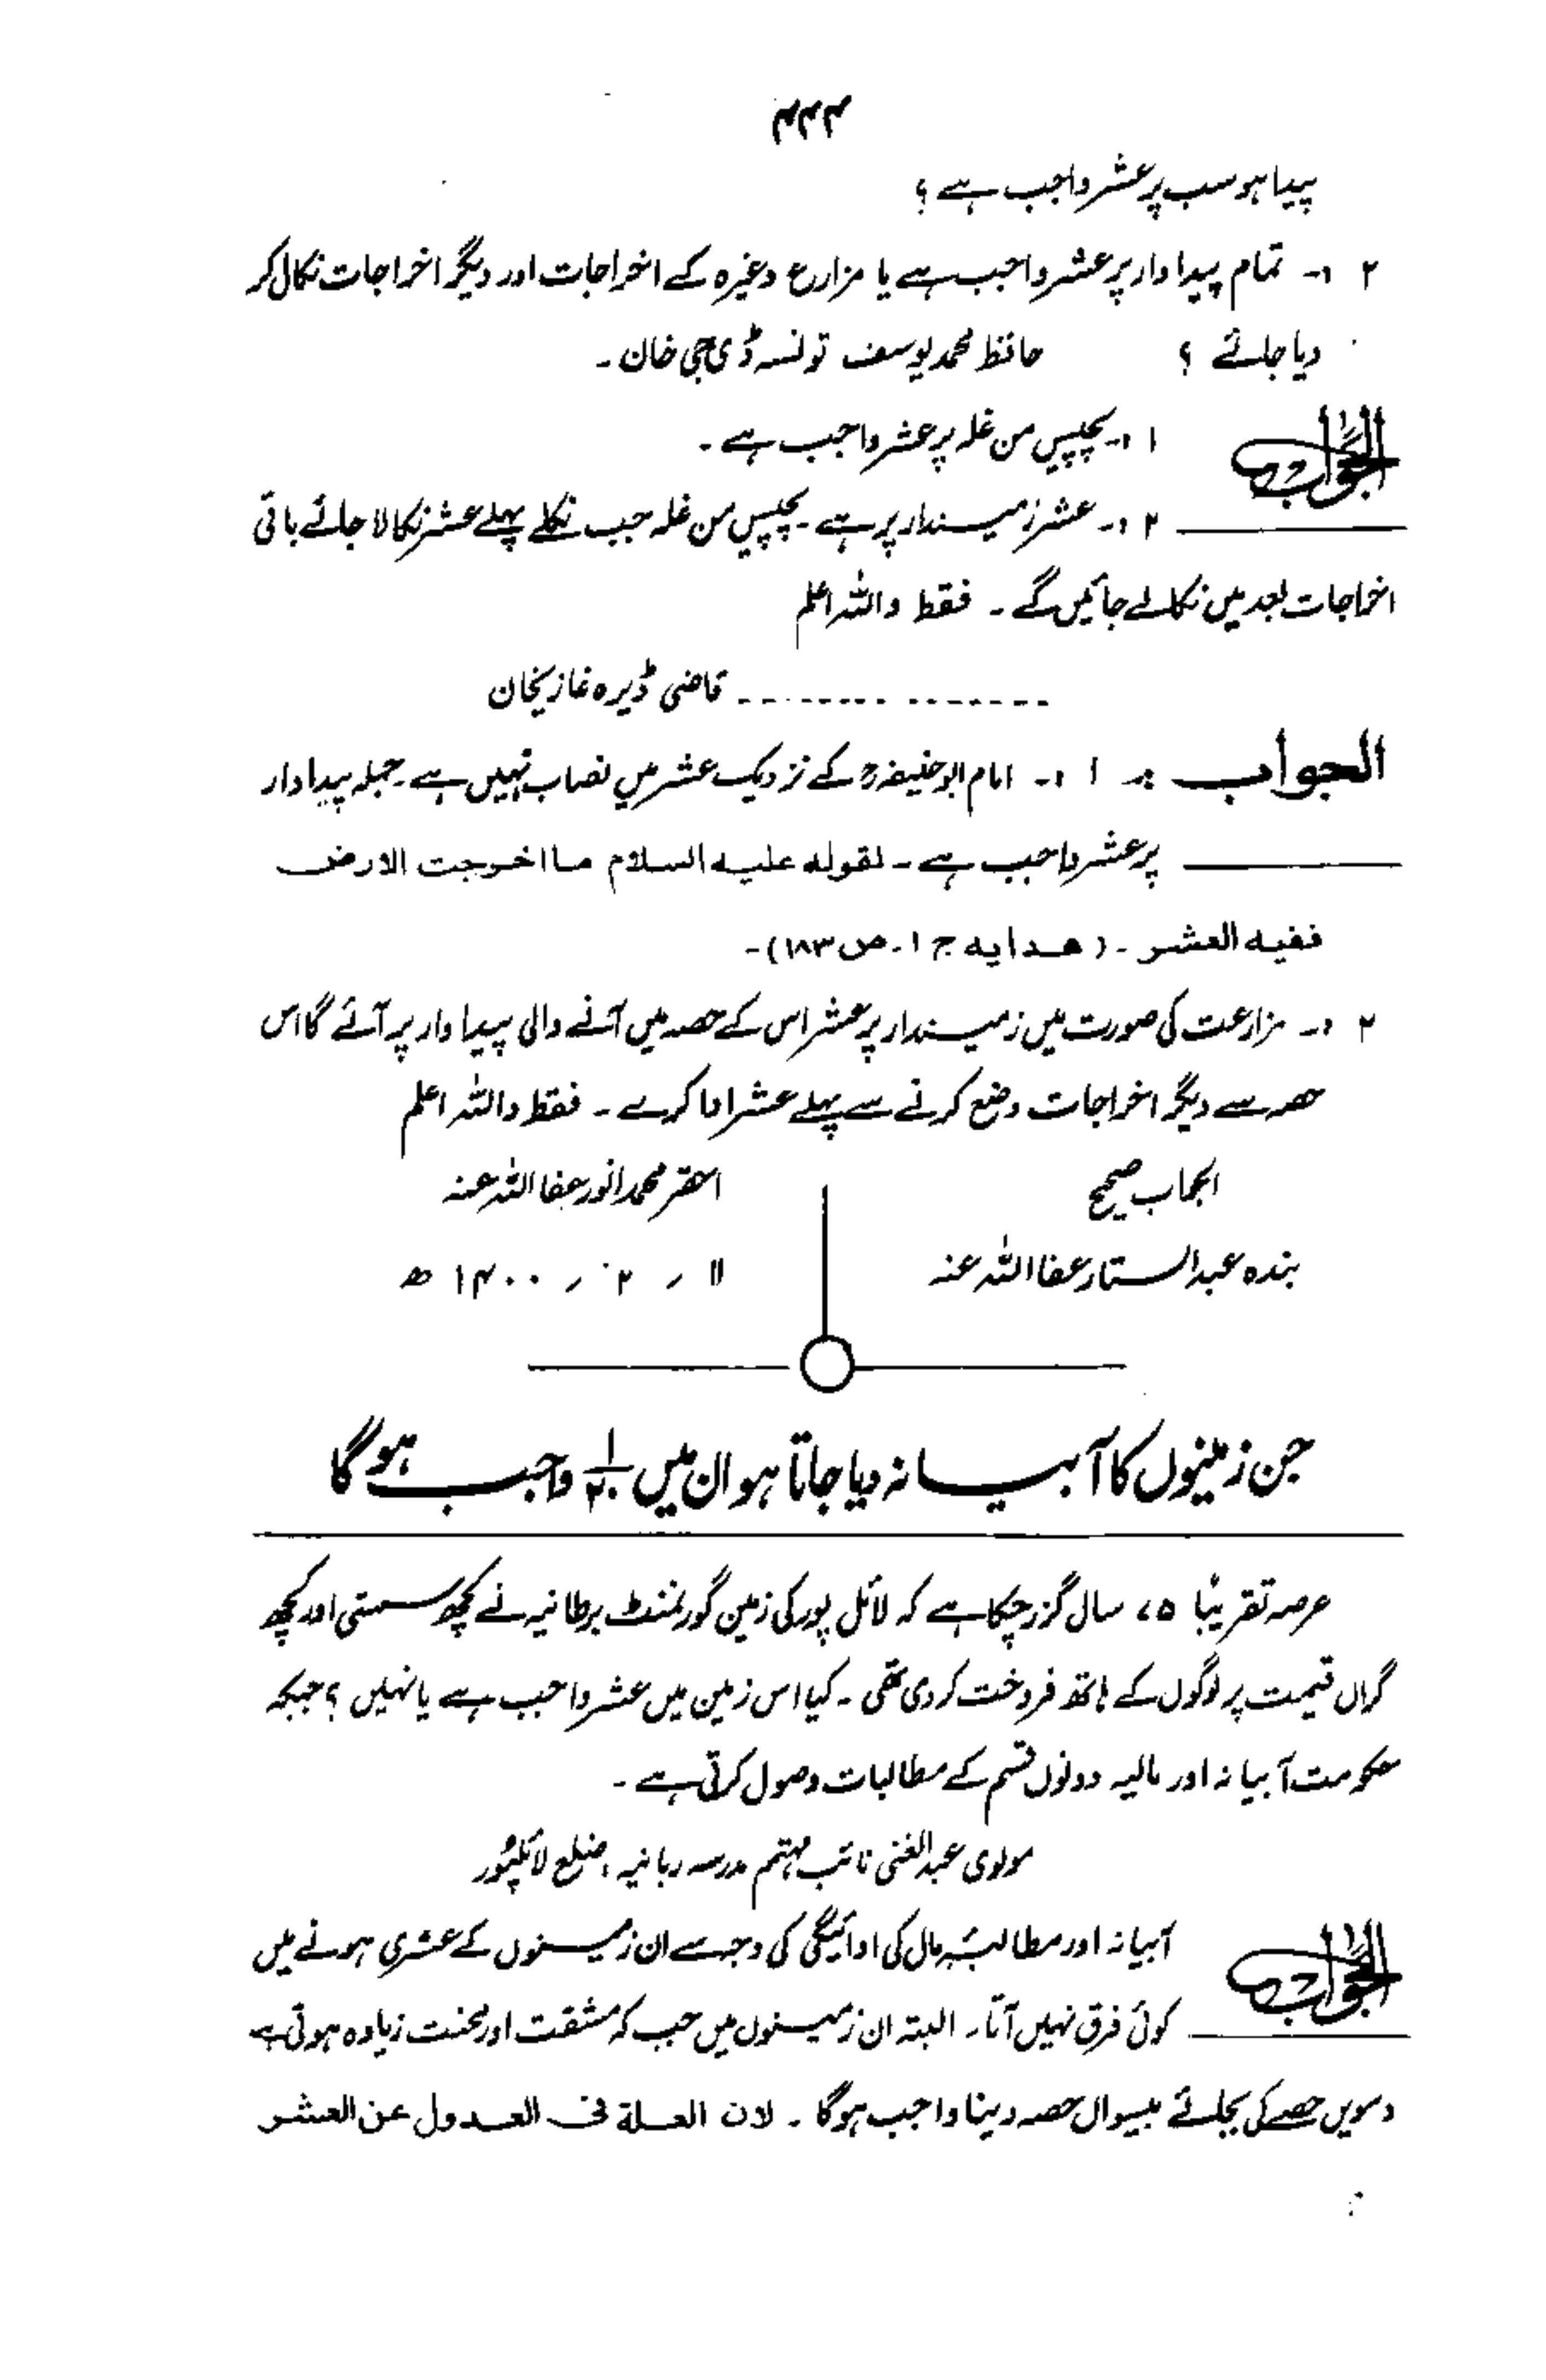 ۴۲۳
پیدا ہو سب پر عشر واجب ہے ؟
۲ :- تمام پیداوار پر عشر واجب ہے یا مزارع وغیرہ کے اخراجات اور دیگر اخراجات نکال کر
دیا جائے ؟ حافظ محمد یوسف تونسہ ڈی جی خان -
الجواب ۱ :- پچیس من غلہ پر عشر واجب ہے -
۲ :- عشر زمیندار پر ہے - پچیس من غلہ جب نکلے پہلے عشر نکالا جائے باقی
اخراجات بعد میں نکالے جائیں گے - فقط واللہ اعلم
--------------- قاضی ڈیرہ غازیخان
الجواب :- ۱ :- امام ابوحنیفہؒ کے نزدیک عشر میں نصاب نہیں ہے - جملہ پیداوار
پر عشر واجب ہے - لقوله عليه السلام ما اخرجت الارض
ففيه العشر - (هدايه ج ۱ - ص ۱۸۳) -
۲ :- مزارعت کی صورت میں زمیندار پر عشر اس کے حصہ میں آنے والی پیداوار پر آئے گا اس
حصہ سے دیگر اخراجات وضع کرنے سے پہلے عشر ادا کرے - فقط واللہ اعلم
الجواب صحیح احقر محمد انور عفا اللہ عنہ
بندہ عبدالستار عفا اللہ عنہ ۱۱ ؍ ۲ ؍ ۱۴۰۰ ھ
جن زمینوں کا آبیانہ دیا جاتا ہو ان میں ۱/۲۰ واجب ہوگا
عرصہ تقریبًا ۷۵ سال گزر چکا ہے کہ لائل پور کی زمین گورنمنٹ برطانیہ نے کچھ سستی اور کچھ
گراں قیمت پر لوگوں کے ہاتھ فروخت کر دی تھی - کیا اس زمین میں عشر واجب ہے یا نہیں ؟ جبکہ
حکومت آبیانہ اور مالیہ دونوں قسم کے مطالبات وصول کرتی ہے -
مولوی عبدالغنی نائب مہتمم مدرسہ ربانیہ ، ضلع لائلپور
الجواب آبیانہ اور مطالبۂ مال کی ادائیگی کی وجہ سے ان زمینوں کے عشری ہونے میں
کوئی فرق نہیں آتا - البتہ ان زمینوں میں جب کہ مشقت اور محنت زیادہ ہوتی ہے
دسویں حصے کی بجائے بیسواں حصہ دینا واجب ہوگا - لان العلة فى العدول عن العشر